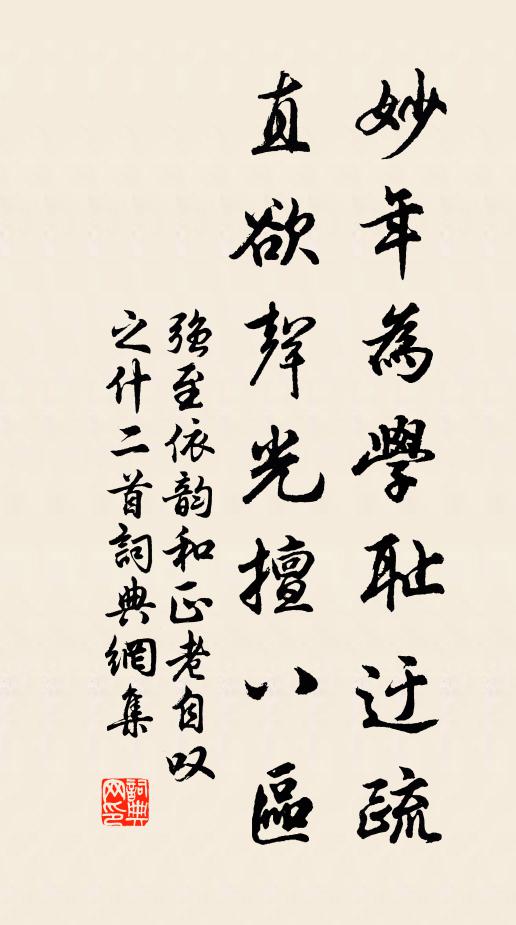 妙年為學耻迂疏
直欲聲光擅八區
強至依韵和正老自叹
之什二首詞典網集
詞典网印